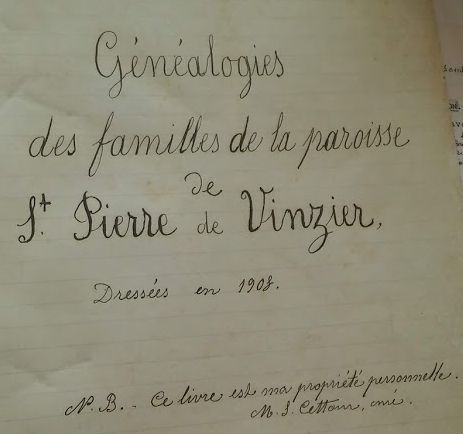 Généalogies
des familles de la paroisse
de
St. Pierre de Vinzier,
Dressées en 1908.
N.B. - Ce livre est ma propriété personnelle.
M. S. Cettour, curé.